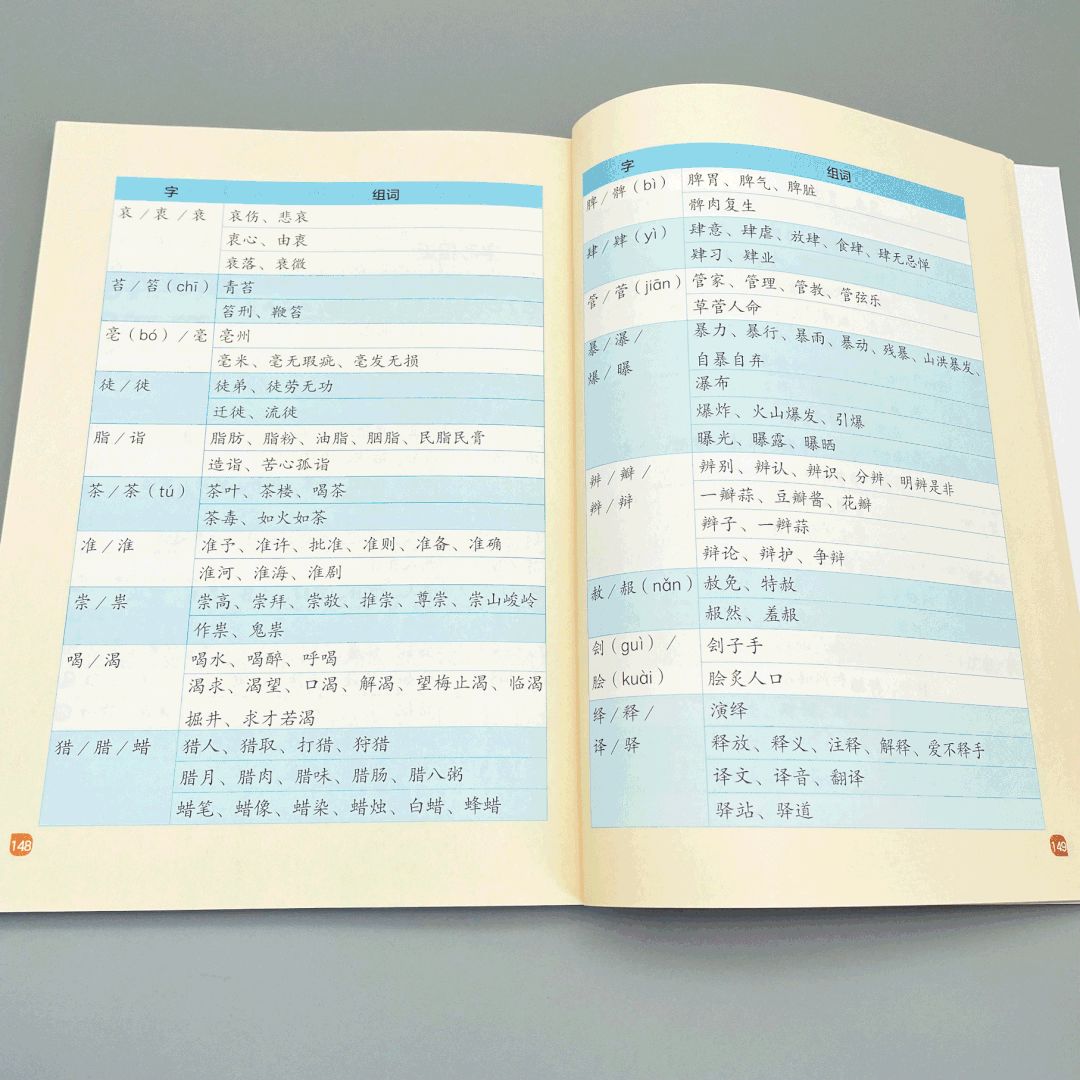 字 组词
哀/衷/衰 哀伤、悲哀
衷心、由衷
衰落、衰微
苔/笞（chī） 青苔
笞刑、鞭笞
亳（bó）/毫 亳州
毫米、毫无瑕疵、毫发无损
徒/徙 徒弟、徒劳无功
迁徙、流徙
脂/诣 脂肪、脂粉、油脂、胭脂、民脂民膏
造诣、苦心孤诣
茶/荼（tú） 茶叶、茶楼、喝茶
荼毒、如火如荼
准/淮 准予、准许、批准、准则、准备、准确
淮河、淮海、淮剧
崇/祟 崇高、崇拜、崇敬、推崇、尊崇、崇山峻岭
作祟、鬼祟
喝/渴 喝水、喝醉、呼喝
渴求、渴望、口渴、解渴、望梅止渴、临渴
掘井、求才若渴
猎/腊/蜡 猎人、猎取、打猎、狩猎
腊月、腊肉、腊味、腊肠、腊八粥
蜡笔、蜡像、蜡染、蜡烛、白蜡、蜂蜡
148
字 组词
脾/髀（bì） 脾胃、脾气、脾脏
髀肉复生
肆/肄（yì） 肆意、肆虐、放肆、食肆、肆无忌惮
肄习、肄业
管/菅（jiān） 管家、管理、管教、管弦乐
草菅人命
暴/瀑/ 暴力、暴行、暴雨、暴动、残暴、山洪暴发、
爆/曝 自暴自弃
瀑布
爆炸、火山爆发、引爆
曝光、曝露、曝晒
辨/瓣/ 辨别、辨认、辨识、分辨、明辨是非
辫/辩 一瓣蒜、豆瓣酱、花瓣
辫子、一辫蒜
辩论、辩护、争辩
赦/赧（nǎn） 赦免、特赦
赧然、羞赧
刽（guì）/ 刽子手
脍（kuài） 脍炙人口
绎/释/ 演绎
译/驿 释放、释义、注释、解释、爱不释手
译文、译音、翻译
驿站、驿道
149